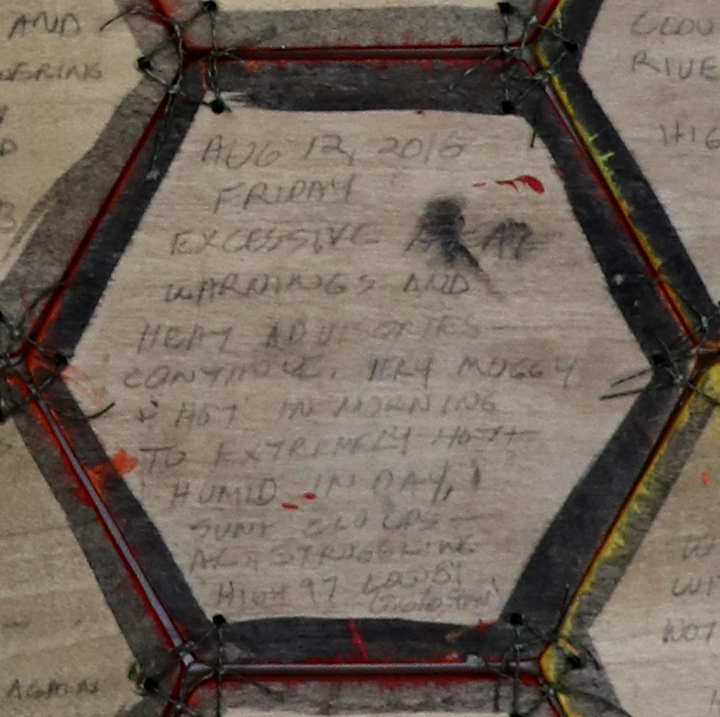 AND
ERING
CLOU
RIVE
HIG
AUG 12, 2016
FRIDAY
EXCESSIVE HEAT
WARNINGS AND
HEAT ADVISORIES
CONTINUE. VERY MUGGY
& HOT IN MORNING
TO EXTREMELY HOT +
HUMID IN DAY,
SUN + CLOUDS
A/C STRUGGLING
HIGH 97 LOW 81
WI
NOT
AGAIN